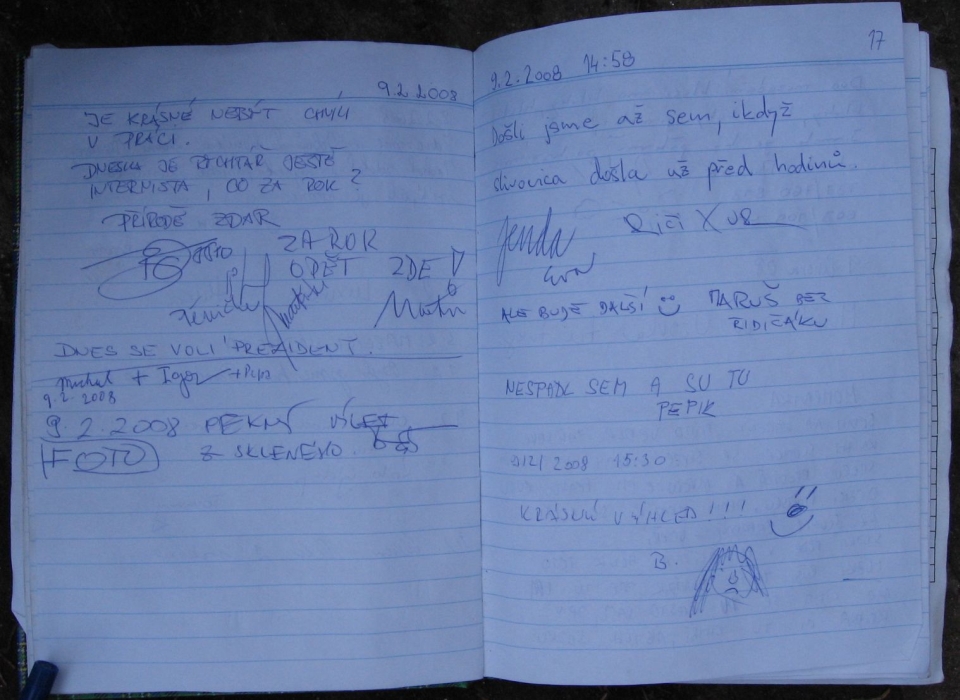 9.2.2008
JE KRÁSNÉ NEBÝT CHVÍLI
V PRÁCI.
DNESKA JE RYCHTÁŘ JEŠTĚ
INTERNISTA, CO ZA ROK?
PŘÍRODĚ ZDAR
ZA ROK
OPĚT ZDE
Martin
DNES SE VOLÍ PREZIDENT.
Michal + Igor + Pepa
9.2.2008
9.2.2008 PĚKNÝ VÝLET
FOTO Z SKLENÉHO.
17
9.2.2008 14:58
Došli jsme až sem, ikdyž
slivovica došla už před hodinů.
Jenda
ALE BUDE DALŠÍ MARUŠ BEZ
ŘIDIČÁKU
NESPADL SEM A SU TU
PEPIK
9/2/2008 15:30
KRÁSNÝ VÝHLED!!!
B.